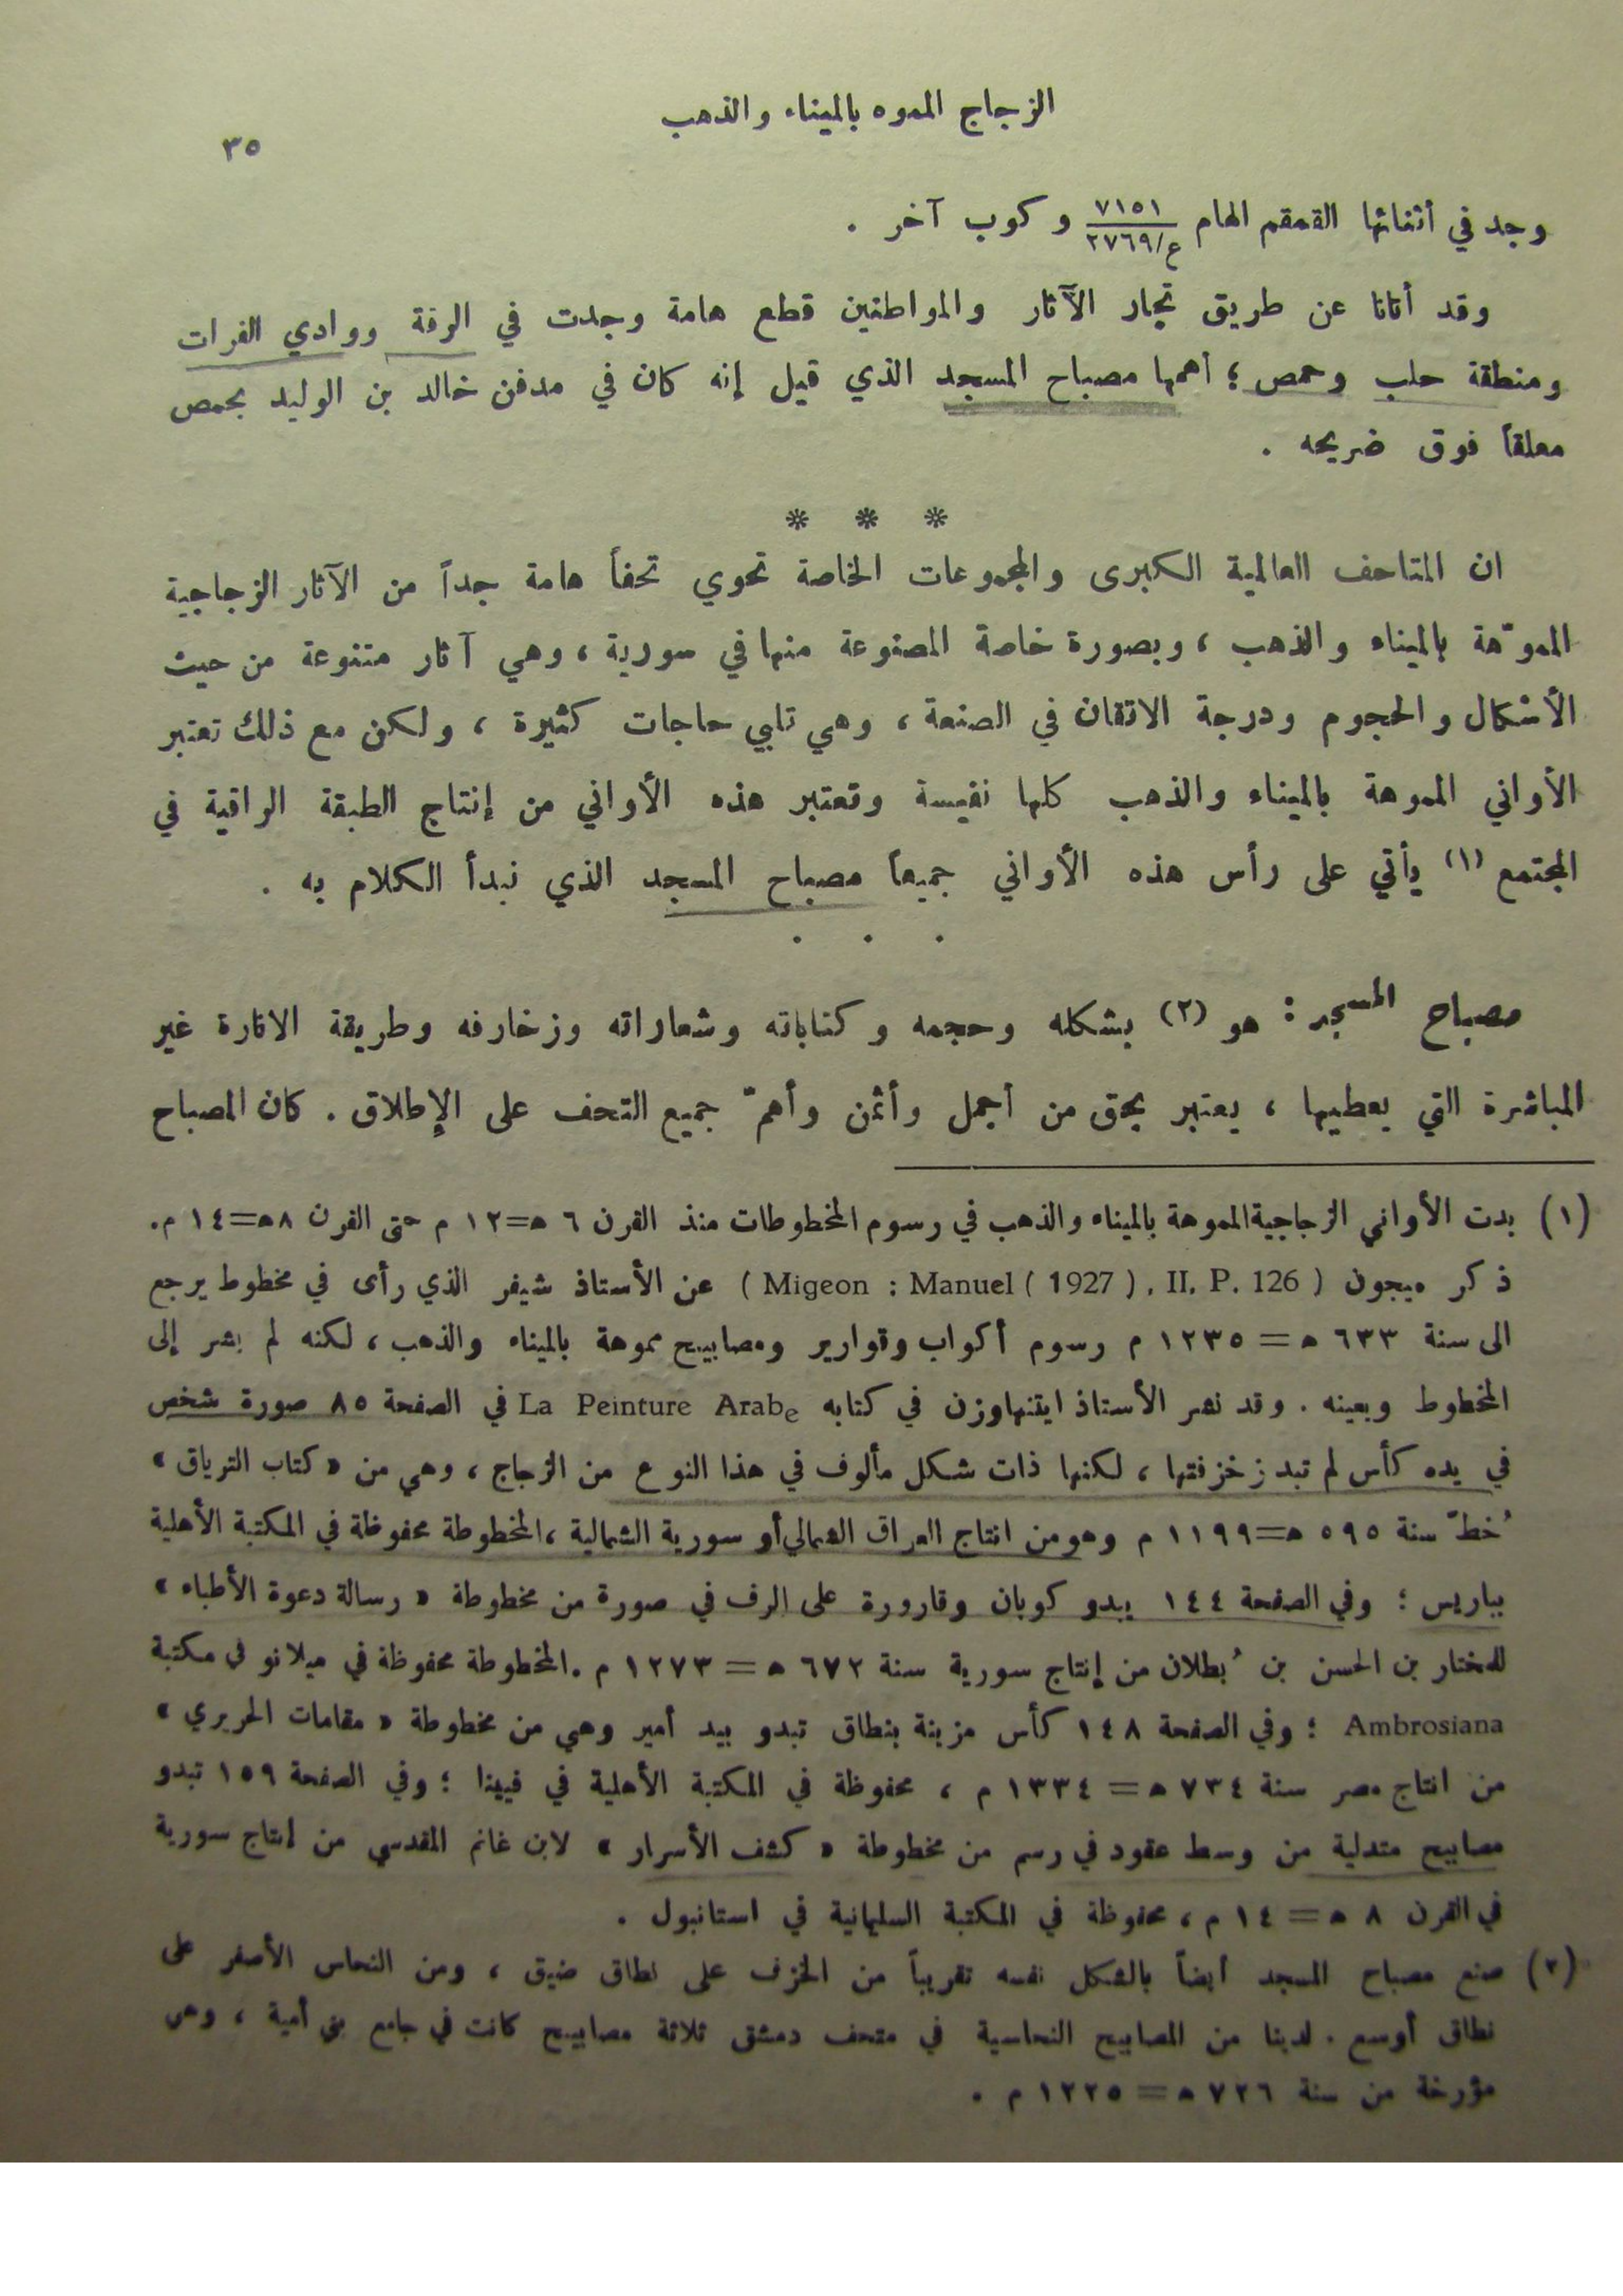 الزجاج المموه بالميناء والذهب
٣٥
وجد في أثنائها القمقم الهام ٧١٥١ / ع/٢٧٦٩ وكوب آخر .
وقد أتانا عن طريق تجار الآثار والمواطنين قطع هامة وجدت في الرقة ووادي الفرات
ومنطقة حلب وحمص ؛ أهمها مصباح المسجد الذي قيل إنه كان في مدفن خالد بن الوليد بحمص
معلقاً فوق ضريحه .
* * *
ان المتاحف العالمية الكبرى والمجموعات الخاصة تحوي تحفاً هامة جداً من الآثار الزجاجية
المموّهة بالميناء والذهب ، وبصورة خاصة المصنوعة منها في سورية ، وهي آثار متنوعة من حيث
الأشكال والحجوم ودرجة الاتقان في الصنعة ، وهي تلبي حاجات كثيرة ، ولكن مع ذلك تعتبر
الأواني المموهة بالميناء والذهب كلها نفيسة وتعتبر هذه الأواني من إنتاج الطبقة الراقية في
المجتمع (١) يأتي على رأس هذه الأواني جميعاً مصباح المسجد الذي نبدأ الكلام به .
. . .
مصباح المسجد : هو (٢) بشكله وحجمه وكتاباته وشعاراته وزخارفه وطريقة الانارة غير
المباشرة التي يعطيها ، يعتبر بحق من أجمل وأثمن وأهمّ جميع التحف على الإطلاق . كان المصباح
(١) بدت الأواني الزجاجية المموهة بالميناء والذهب في رسوم المخطوطات منذ القرن ٦ ه=١٢ م حتى القرن ٨ه=١٤ م.
ذكر ميجون ( Migeon : Manuel ( 1927 ) , II. P. 126 ) عن الأستاذ شيفر الذي رأى في مخطوط يرجع
الى سنة ٦٣٣ ه = ١٢٣٥ م رسوم أكواب وقوارير ومصابيح مموهة بالميناء والذهب ، لكنه لم يشر إلى
المخطوط وبعينه . وقد نشر الأستاذ ايتنهاوزن في كتابه La Peinture Arabe في الصفحة ٨٥ صورة شخص
في يده كأس لم تبد زخزفتها ، لكنها ذات شكل مألوف في هذا النوع من الزجاج ، وهي من « كتاب الترياق »
خُطّ سنة ٥٩٥ ه=١١٩٩ م وهو من انتاج العراق الشمالي أو سورية الشمالية ، المخطوطة محفوظة في المكتبة الأهلية
بباريس ؛ وفي الصفحة ١٤٤ يبدو كوبان وقارورة على الرف في صورة من مخطوطة « رسالة دعوة الأطباء »
للمختار بن الحسن بن بُطلان من إنتاج سورية سنة ٦٧٢ ه = ١٢٧٣ م . المخطوطة محفوظة في ميلانو في مكتبة
Ambrosiana ؛ وفي الصفحة ١٤٨ كأس مزينة بنطاق تبدو بيد أمير وهي من مخطوطة « مقامات الحريري »
من انتاج مصر سنة ٧٣٤ ه = ١٣٣٤ م ، محفوظة في المكتبة الأهلية في فيينا ؛ وفي الصفحة ١٥٩ تبدو
مصابيح متدلية من وسط عقود في رسم من مخطوطة « كشف الأسرار » لابن غانم المقدسي من إنتاج سورية
في القرن ٨ ه = ١٤ م ، محفوظة في المكتبة السليمانية في استانبول .
(٢) صنع مصباح المسجد أيضاً بالشكل نفسه تقريباً من الخزف على نطاق ضيق ، ومن النحاس الأصفر على
نطاق أوسع . لدينا من المصابيح النحاسية في متحف دمشق ثلاثة مصابيح كانت في جامع بني أمية ، وهي
مؤرخة من سنة ٧٢٦ ه = ١٢٢٥ م .